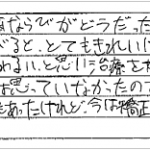 ならびがどうだった
べると、とてもきれいに
わるい、と思い治療を
思っていなかったので
あたけれど今は矯正